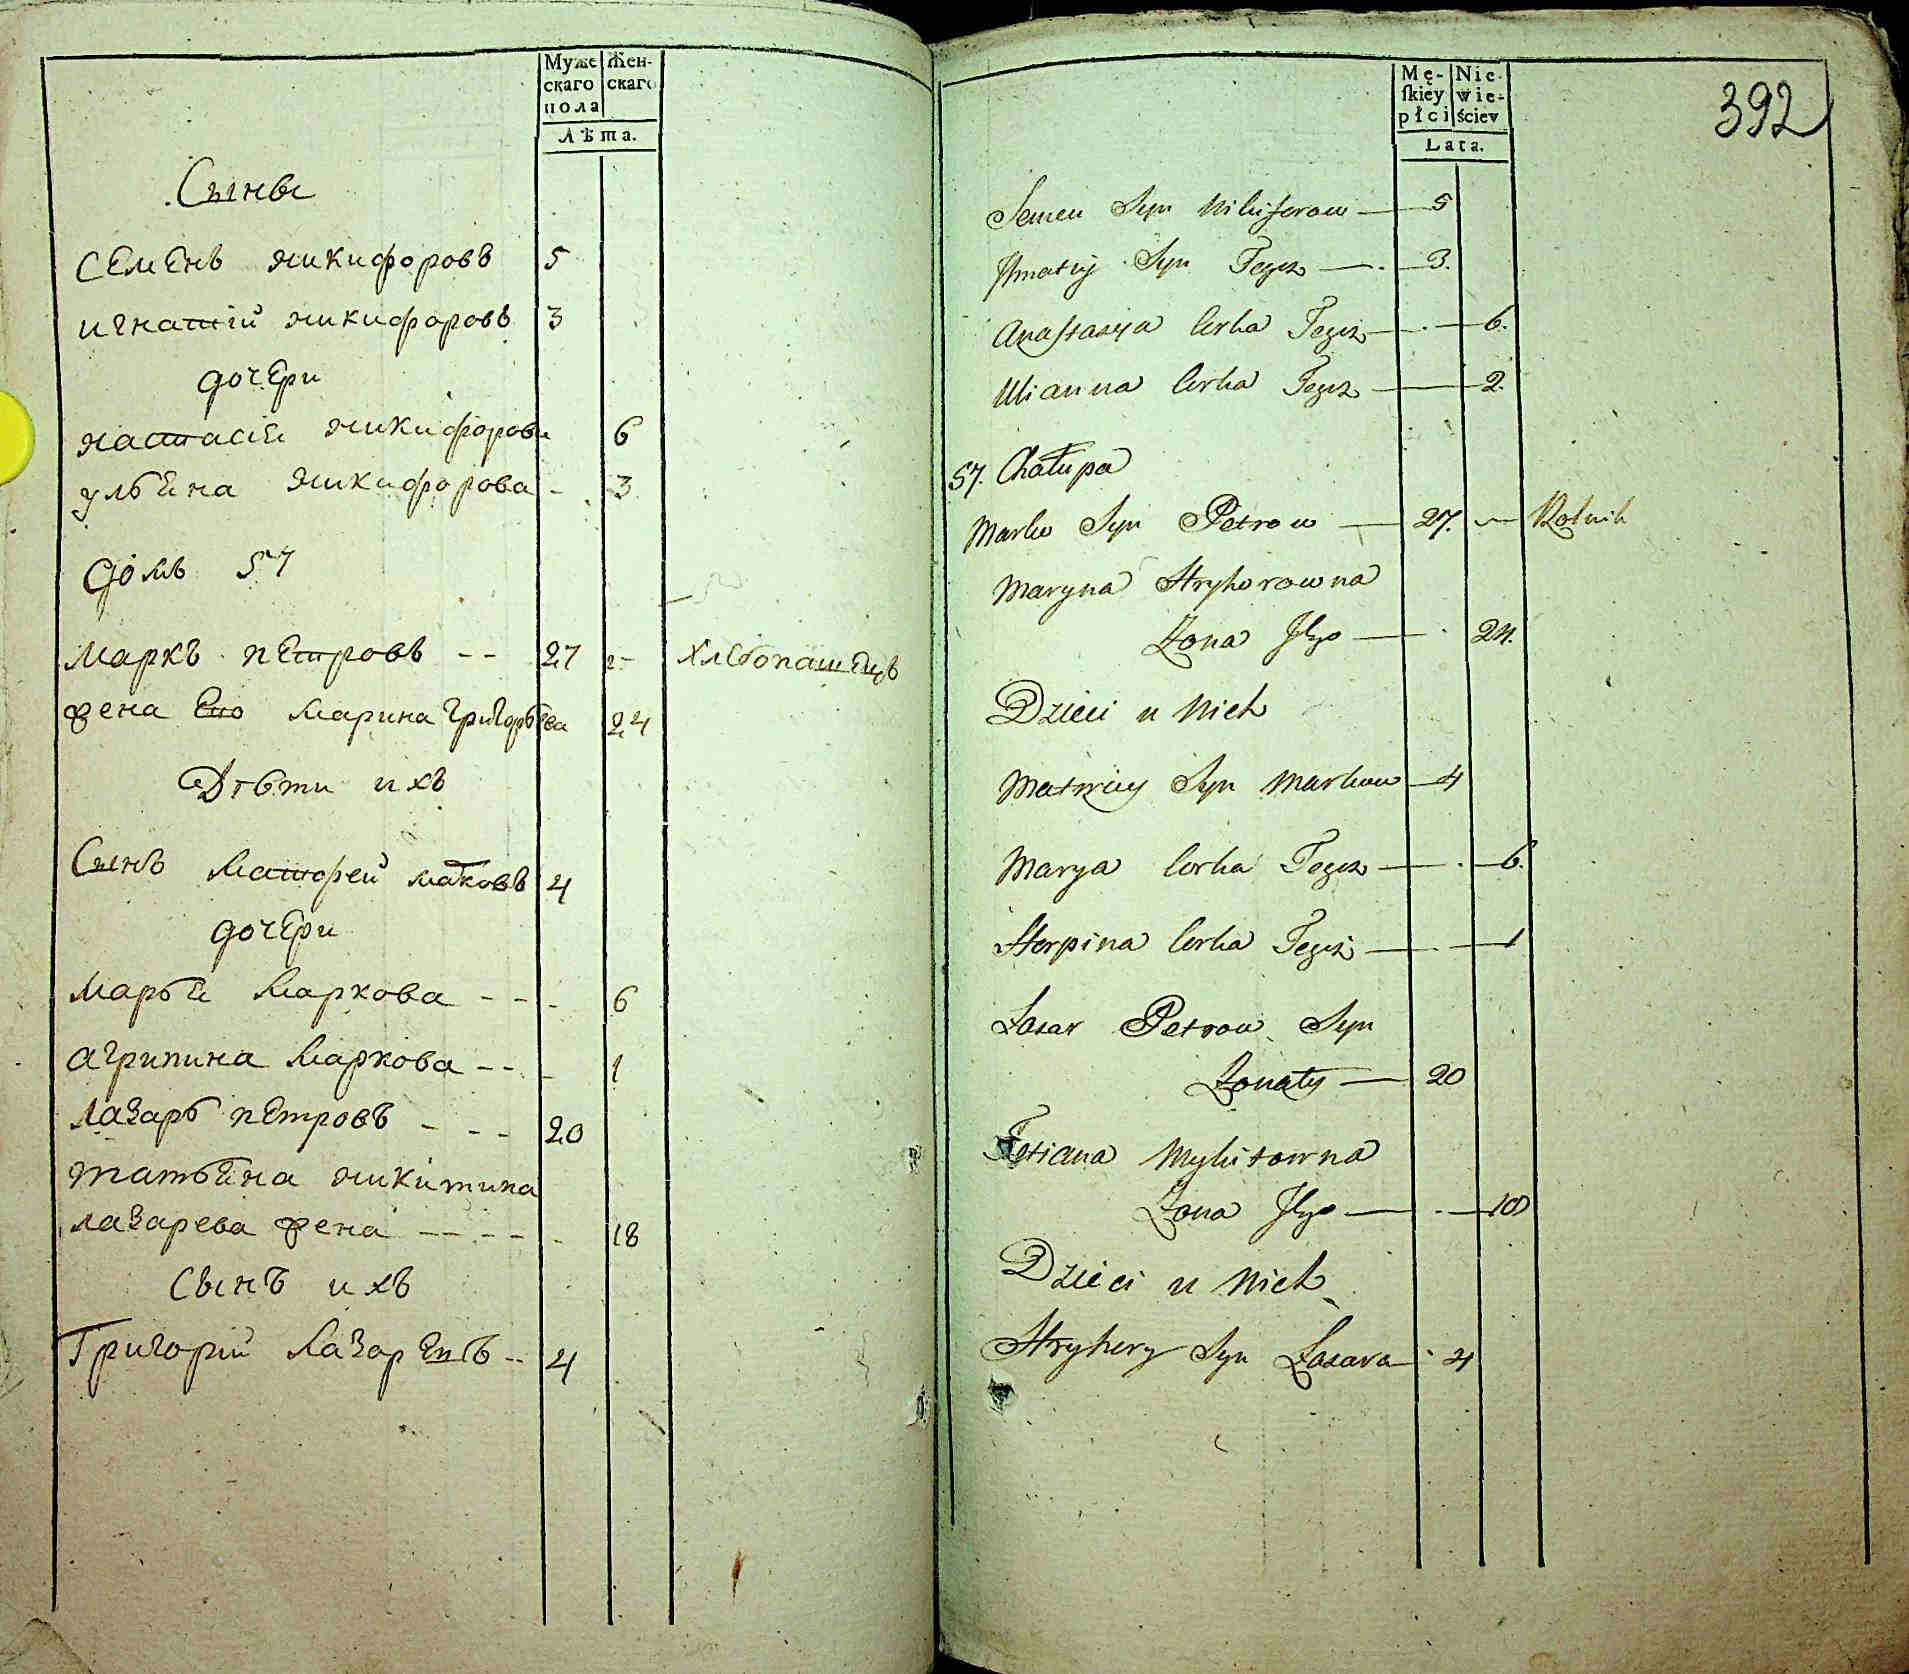 Муже
скаго
пола
Жен-
скаго
Лѣта.
Сыны
Семенъ никифоровъ 5
игнатій никифоровъ 3
дочери
настасія никифорова 6
ульяна никифорова - 3
Домъ 57
Маркъ петровъ -- 27 -- хлебопашецъ
жена Его Марина Григорьева 24
Дѣти ихъ
Сынъ Матфей Маковъ 4
дочери
Марья Маркова --- 6
агрипина Маркова --- 1
лазарь петровъ --- 20
татьяна никитина
лазарева жена ----- 18
Сынъ ихъ
Григорій Лазаревъ -- 4
Mę-
skiey
płci
Nie
wie-
ściey
Lata.
392
Semen Syn Nikiforow — 5
Ihnatiy Syn Tegoż — 3.
Anastasya Corka Tegoż — 6.
Ulianna Corka Tegoż — 2.
57. Chałupa
Marko Syn Petrow — 27. — Rolnik
Maryna Hryhorowna
Żona Jego — 24.
Dzieci u Nich
Matwiey Syn Markow — 4
Marya Corka Tegoż — 6.
Horpina Corka Tegoż — 1
Łazar Petrow Syn
Żonaty — 20
Tetiana Mykitowna
Żona Jego — 18
Dzieci u Nich
Hryhory Syn Łazara — 4